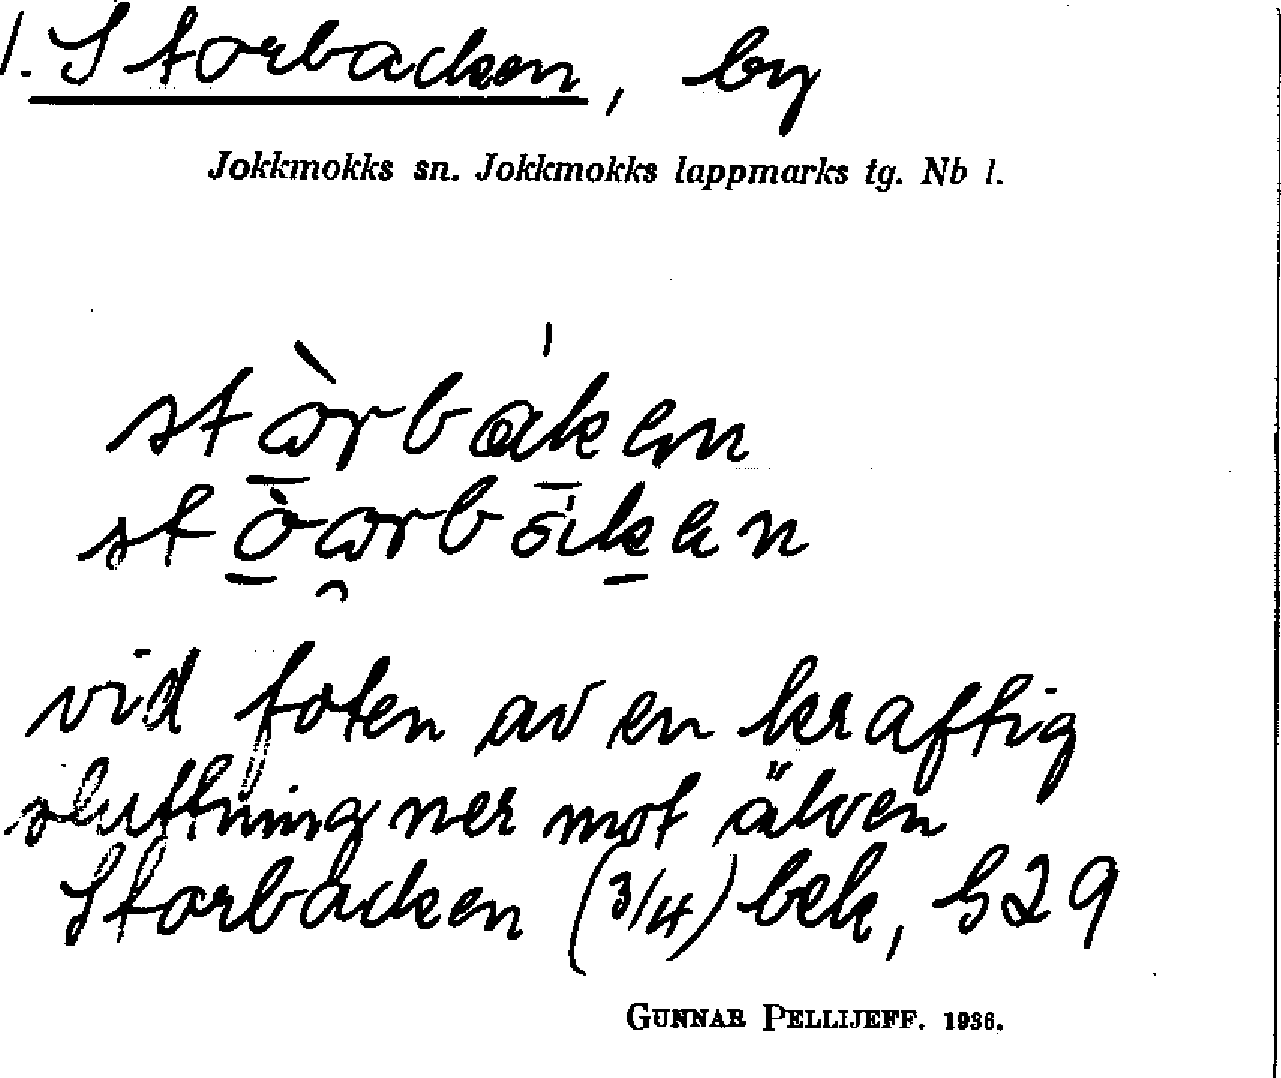 1. Storbacken, by
Jokkmokks sn. Jokkmokks lappmarks tg. Nb l.
stòrbáken
stòarbáken
vid foten av en kraftig
sluttning ner mot älven
Storbacken (3/4) bek, S29
GUNNAR PELLIJEFF. 1936.